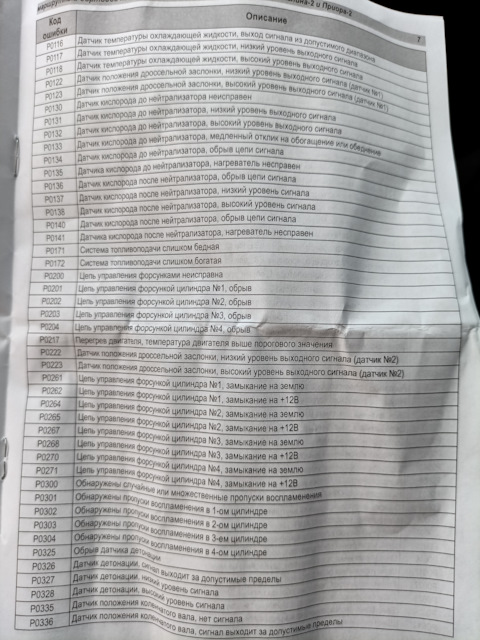 Приора-2
7
Код ошибки Описание
P0116 Датчик температуры охлаждающей жидкости, выход сигнала из допустимого диапазона
P0117 Датчик температуры охлаждающей жидкости, низкий уровень выходного сигнала
P0118 Датчик температуры охлаждающей жидкости, высокий уровень выходного сигнала
P0122 Датчик положения дроссельной заслонки, низкий уровень выходного сигнала (датчик №1)
P0123 Датчик положения дроссельной заслонки, высокий уровень выходного сигнала (датчик №1)
P0130 Датчик кислорода до нейтрализатора неисправен
P0131 Датчик кислорода до нейтрализатора, низкий уровень выходного сигнала
P0132 Датчик кислорода до нейтрализатора, высокий уровень выходного сигнала
P0133 Датчик кислорода до нейтрализатора, медленный отклик на обогащение или обеднение
P0134 Датчик кислорода до нейтрализатора, обрыв цепи сигнала
P0135 Датчика кислорода до нейтрализатора, нагреватель неисправен
P0136 Датчик кислорода после нейтрализатора, обрыв цепи сигнала
P0137 Датчик кислорода после нейтрализатора, низкий уровень сигнала
P0138 Датчик кислорода после нейтрализатора, высокий уровень сигнала
P0140 Датчик кислорода после нейтрализатора, обрыв цепи сигнала
P0141 Датчика кислорода после нейтрализатора, нагреватель неисправен
P0171 Система топливоподачи слишком бедная
P0172 Система топливоподачи слишком богатая
P0200 Цепь управления форсунками неисправна
P0201 Цепь управления форсункой цилиндра №1, обрыв
P0202 Цепь управления форсункой цилиндра №2, обрыв
P0203 Цепь управления форсункой цилиндра №3, обрыв
P0204 Цепь управления форсункой цилиндра №4, обрыв
P0217 Перегрев двигателя, температура двигателя выше порогового значения
P0222 Датчик положения дроссельной заслонки, низкий уровень выходного сигнала (датчик №2)
P0223 Датчик положения дроссельной заслонки, высокий уровень выходного сигнала (датчик №2)
P0261 Цепь управления форсункой цилиндра №1, замыкание на землю
P0262 Цепь управления форсункой цилиндра №1, замыкание на +12В
P0264 Цепь управления форсункой цилиндра №2, замыкание на землю
P0265 Цепь управления форсункой цилиндра №2, замыкание на +12В
P0267 Цепь управления форсункой цилиндра №3, замыкание на землю
P0268 Цепь управления форсункой цилиндра №3, замыкание на +12В
P0270 Цепь управления форсункой цилиндра №4, замыкание на землю
P0271 Цепь управления форсункой цилиндра №4, замыкание на +12В
P0300 Обнаружены случайные или множественные пропуски воспламенения
P0301 Обнаружены пропуски воспламенения в 1-ом цилиндре
P0302 Обнаружены пропуски воспламенения в 2-ом цилиндре
P0303 Обнаружены пропуски воспламенения в 3-ем цилиндре
P0304 Обнаружены пропуски воспламенения в 4-ом цилиндре
P0325 Обрыв датчика детонации
P0326 Датчик детонации, сигнал выходит за допустимые пределы
P0327 Датчик детонации, низкий уровень сигнала
P0328 Датчик детонации, высокий уровень сигнала
P0335 Датчик положения коленчатого вала, нет сигнала
P0336 Датчик положения коленчатого вала, сигнал выходит за допустимые пределы